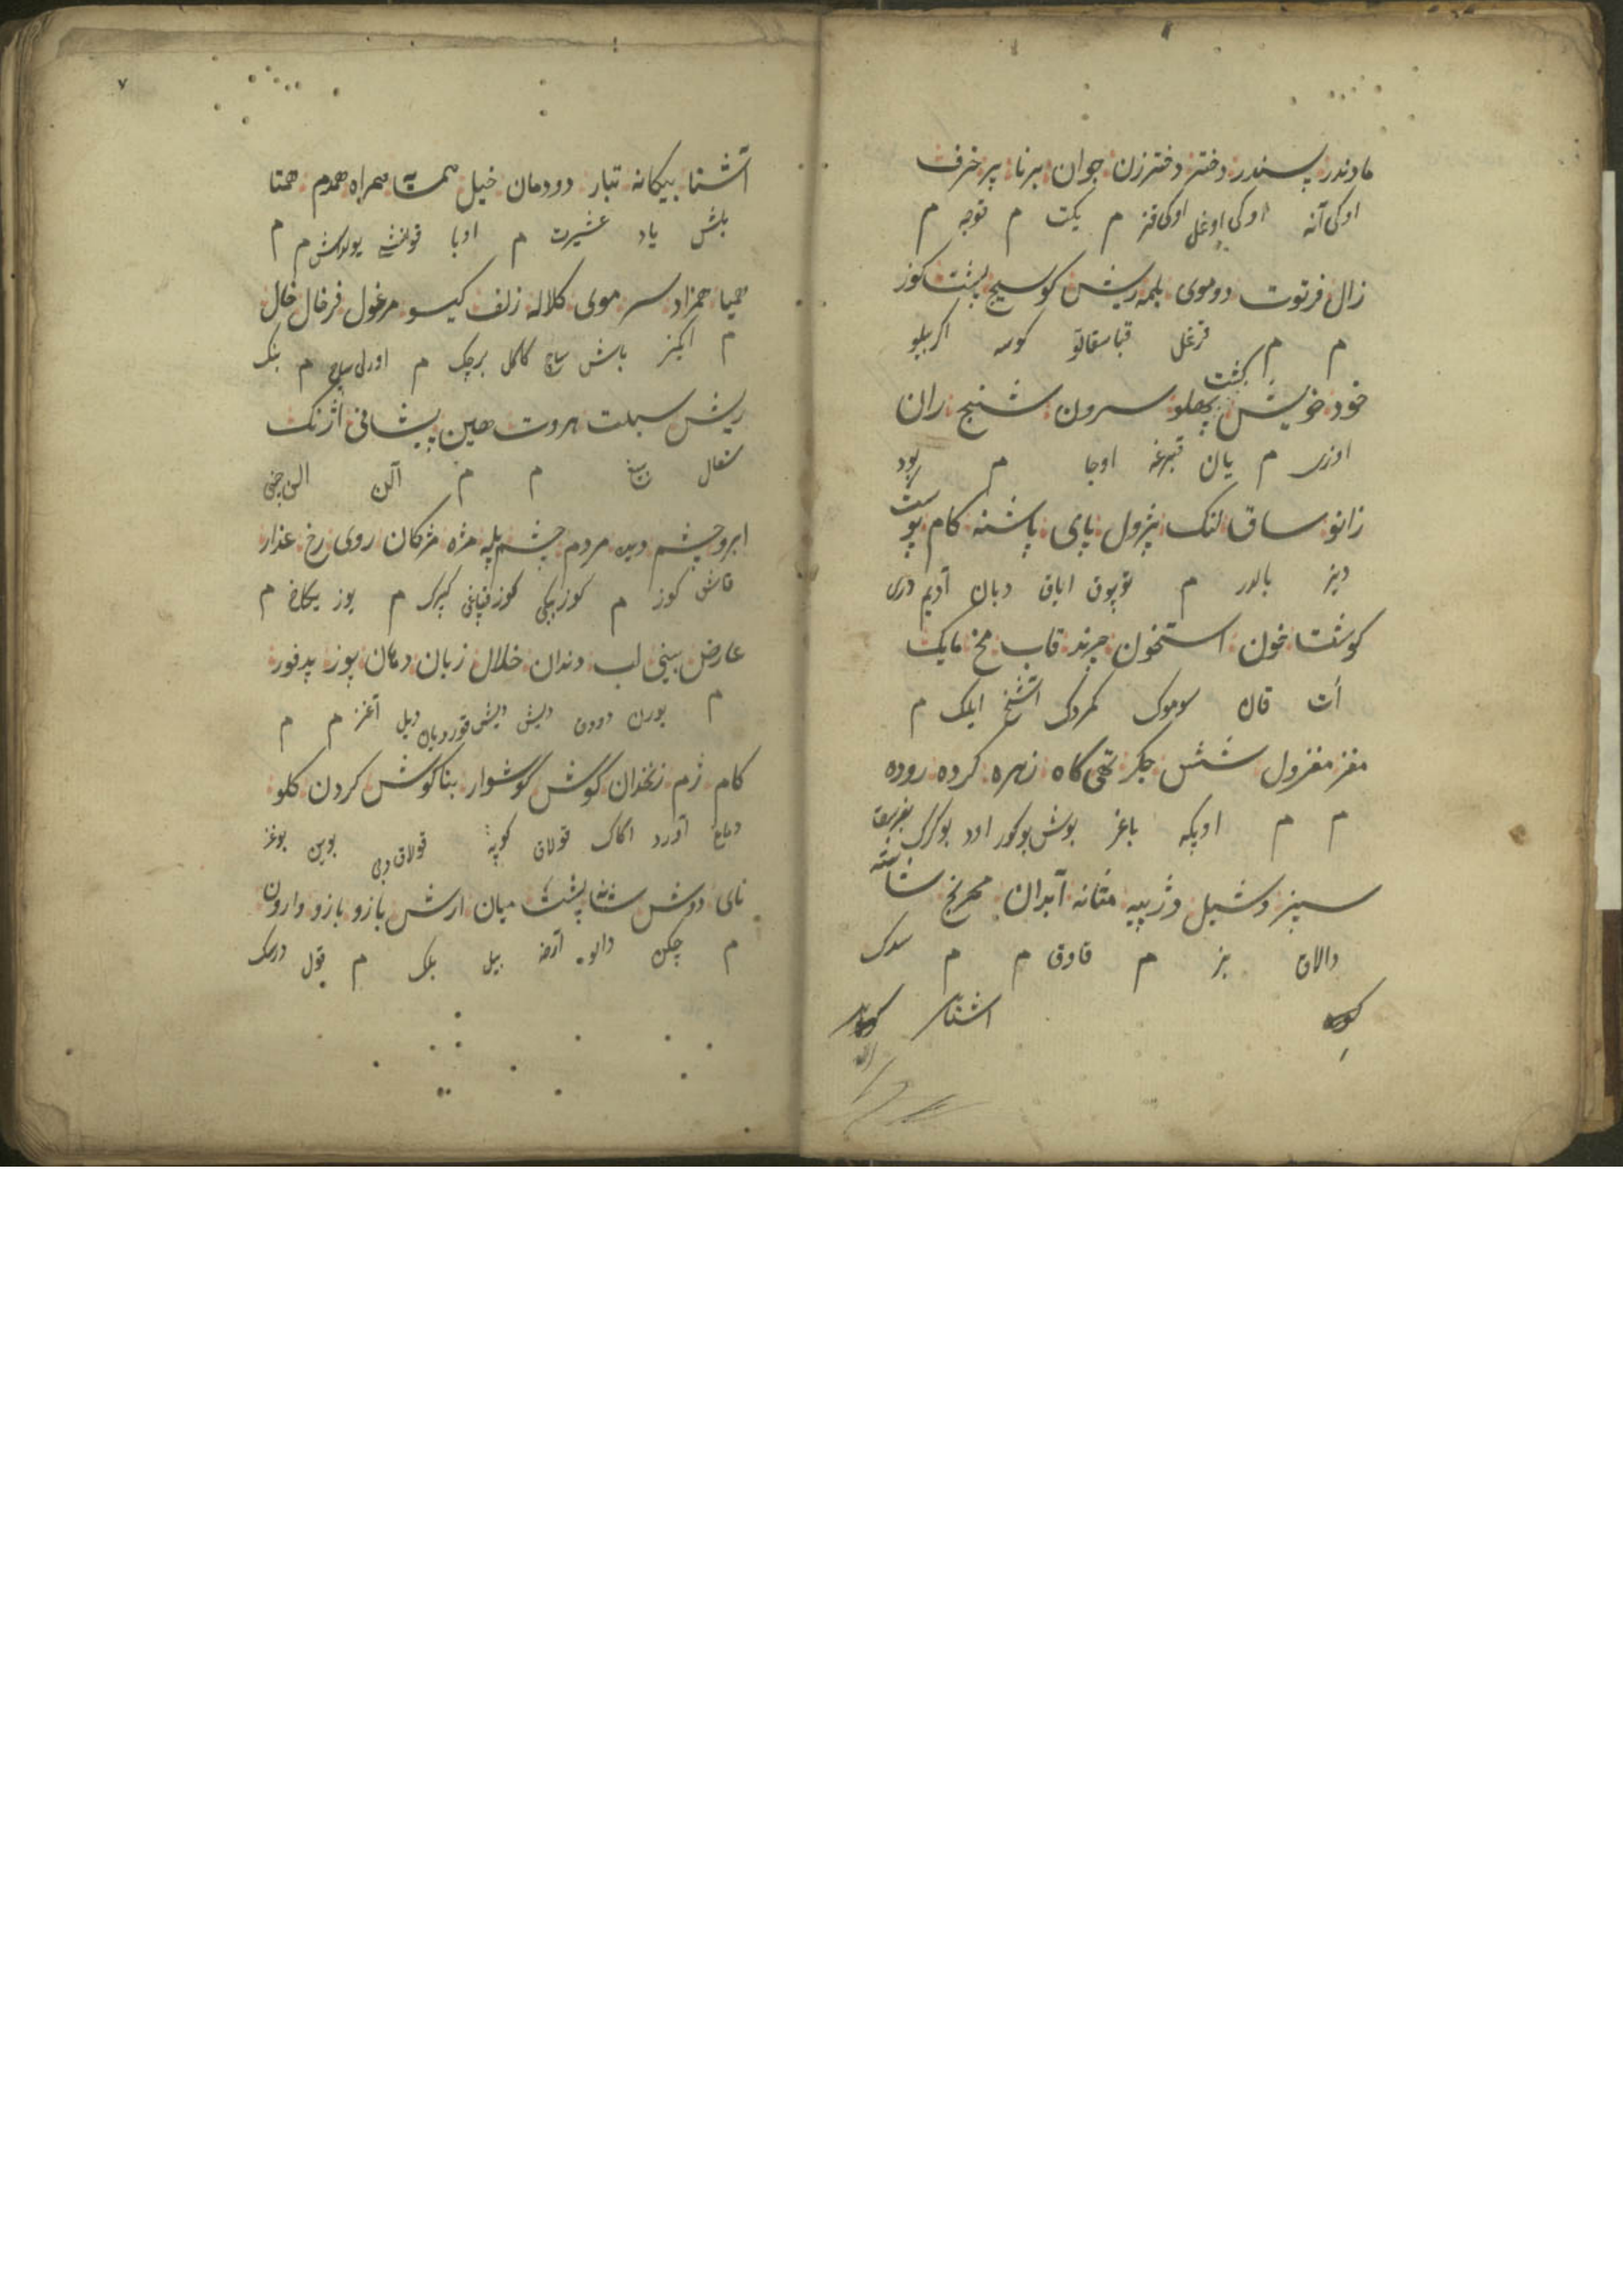 مادندر پسندر دختر دخترزن جوان برنا پیر خرف
اوکی آنه اوکی اوغلی اوکی قز م یکت م قوجه م
زال فرتوت دوموی بلمه ریش کوسیج پشت کوز
م م قرغل قبا سقاللو کوسه اکر بیللو
خود خویش پهلو سرون شتنج ران
اوزی م یان قبرغه اوجا م بود
زانو ساق لنک پژول پای پاشنه کام پوست
دیز بالدر م توپوق ایاق دبان آدیم دری
کوشت خون استخوان چرند قاب مخ مایک
أت قان سوموک کمردک اشخ ایلک م
مغز مغزول شش جکر تهی کاه زهره کرده روده
م م اوپکه باغر بوش بوکور اود بوکرک بغرسق
سپرز وشیل وژ پیه مثانه آبدان مهریخ شاشه
دالاق بز م قاوق م م سدک
آشنا
۷
آشنا بیکانه تبار دودمان خیل همسایه همراه همدم همتا
بلش یاد عشیرت م اوبا قونشی یولداش م م
همپا همزاد سر موی کلاله زلف کیسو مرغول فرخال خال
م اکیز باش ساچ کاکل برچک م اورلی ساج م بنک
ریش سبلت بروت جبین پیشانی اژنک
سقال بیغ م م آلن الن چینی
ابرو چشم دیده مردم چشم پله مژه مژکان روی رخ عذار
قاش کوز م کوز ببکی کوز قپاغی کپرک م یوز یکاغ م
عارض بینی لب دندان خلال زبان دهان پوز بدفوز
م بورن دودق دیش دیش قوردیان دیل آغز م م
کام ژم زنخدان کوش کوشوار بناکوش کردن کلو
دماغ آورد اکاک قولاق کوپه قولاق دبی بوین بوغز
نای دوش شانه پشت میان ارش بازو بازو وارون
م چکن دالو آرقه بیل بلک م قول درسک